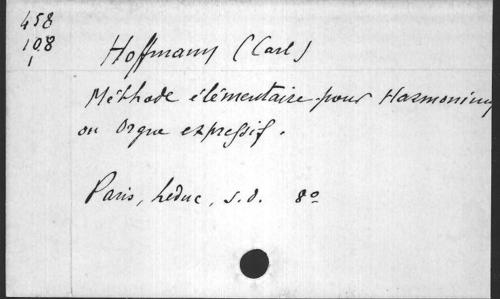 458
108
1
Hoffmann (Carl)
Méthode élémentaire pour Harmonium
ou Orgue expressif.
Paris, Leduc, s.d. 8°